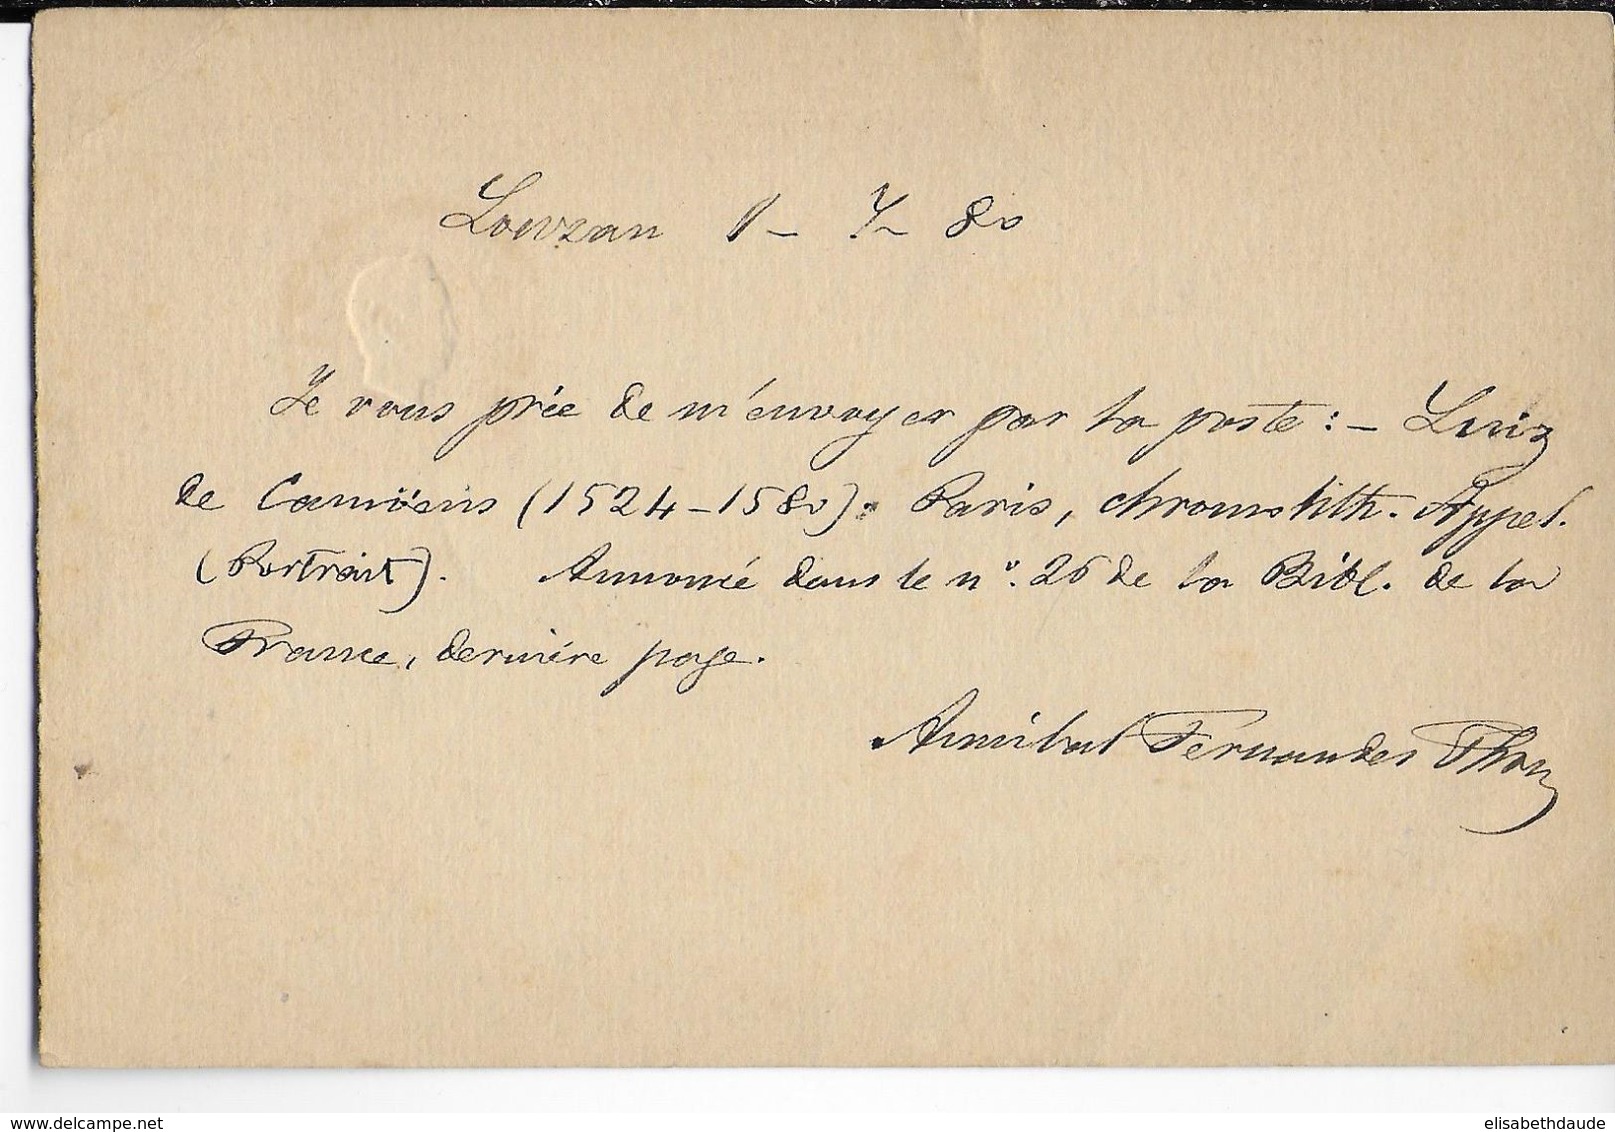 Louzan 1 - 7 - 80
Je vous prée de m'envoyer par la poste : - Luiz
de Camöens (1524-1580). Paris, chromolith. Appel.
(Portrait). Annoncé dans le nº. 26 de la Bibl. de la
France, dernière page.
Annibal Fernandes Thomaz
delcampe.net
elisabethdaude